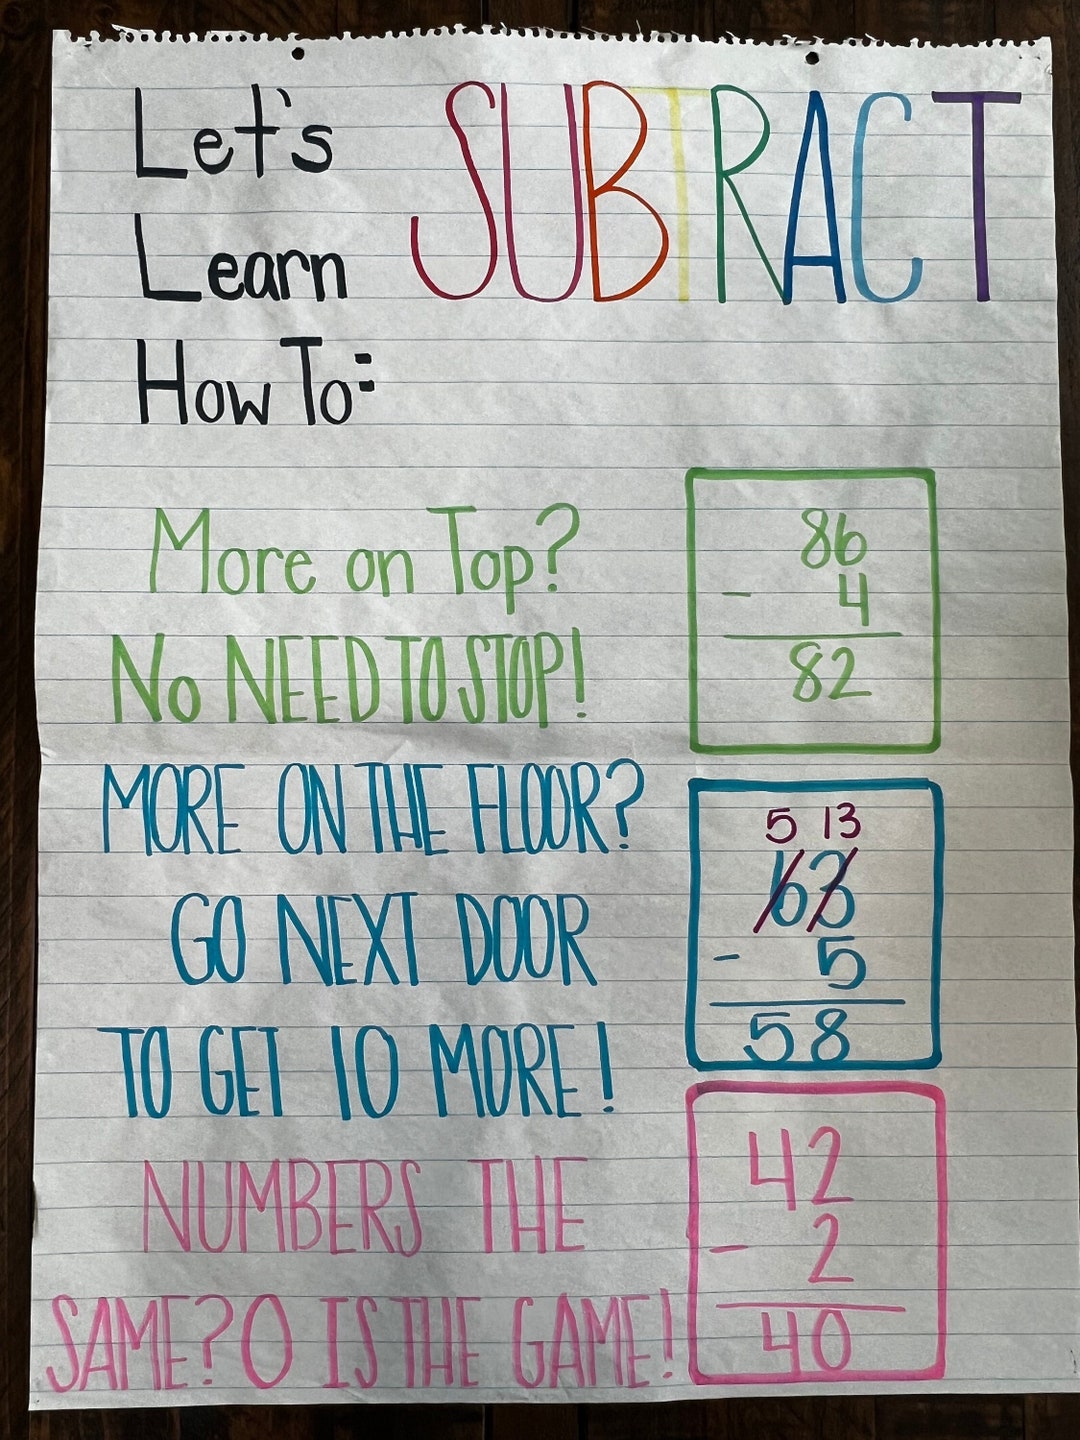 Let's
SUBTRACT
Learn
How To:
More on Top?
No NEED TO STOP!
86
- 4
82
MORE ON THE FLOOR?
GO NEXT DOOR
TO GET 10 MORE!
5 13
63
- 5
58
NUMBERS THE
SAME? 0 IS THE GAME!
42
- 2
40